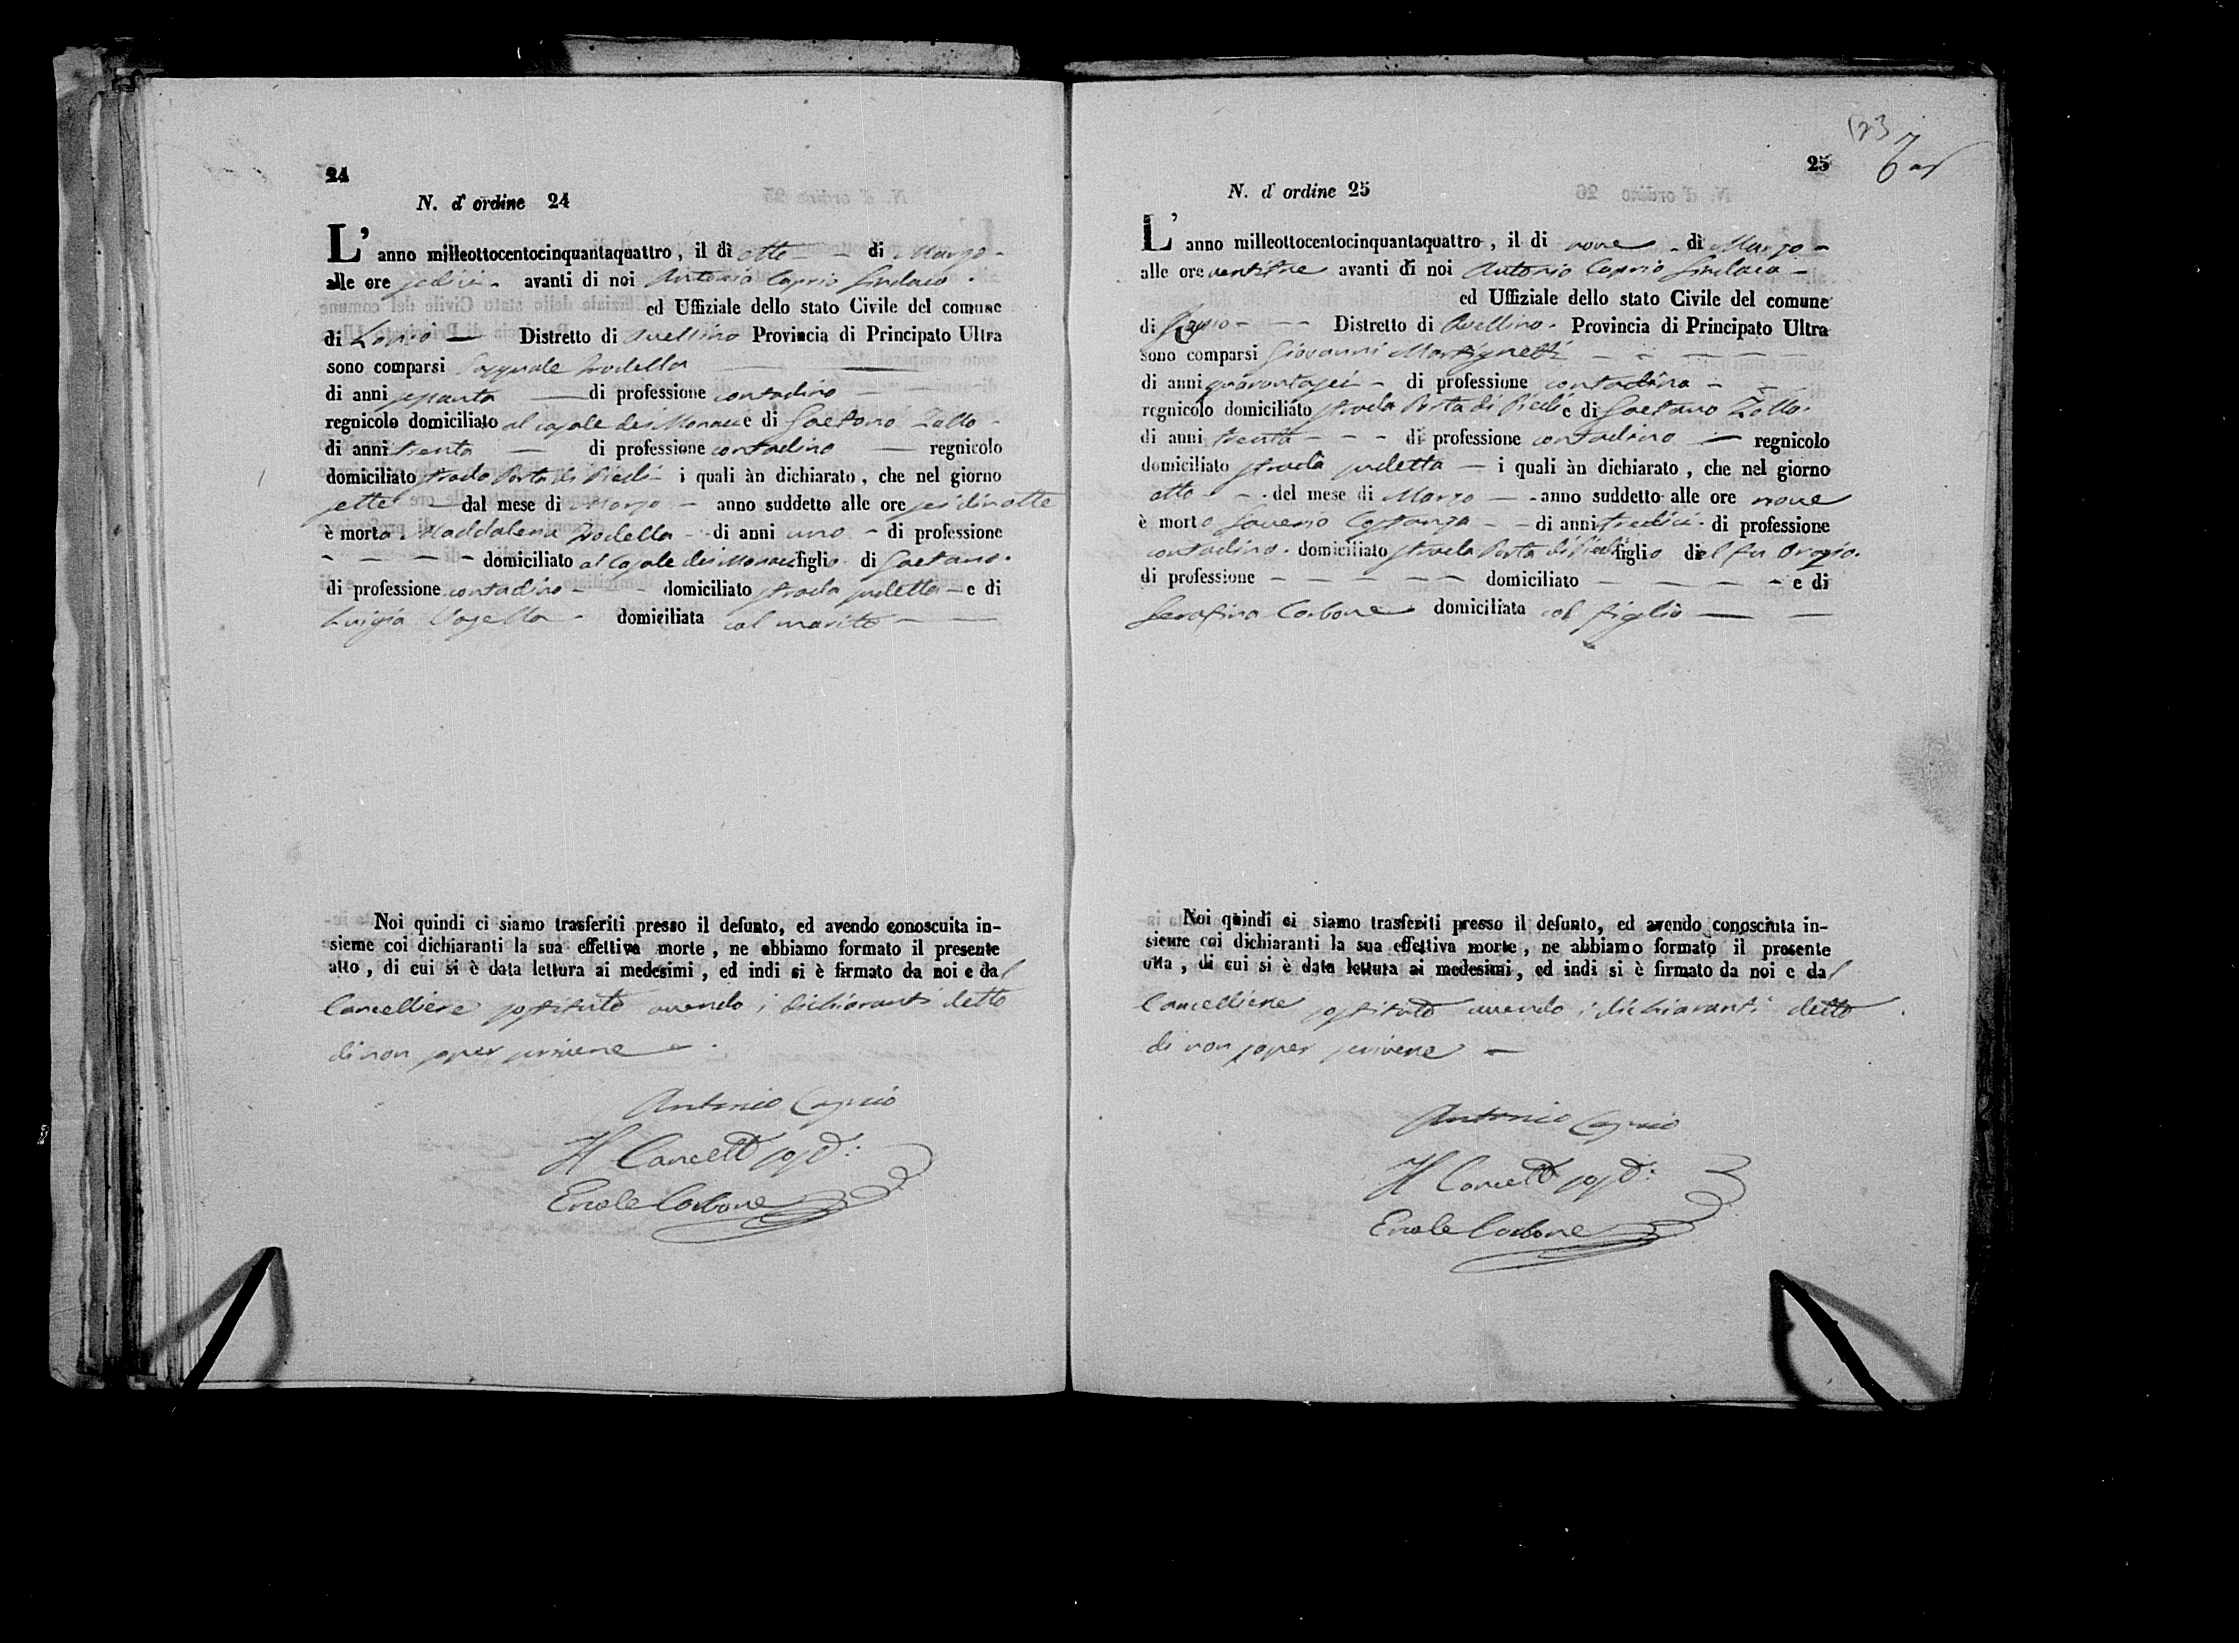 24
N. d'ordine 24
L'anno milleottocentocinquantaquattro, il dì otto di Marzo
alle ore sedici avanti di noi Antonio Caprio Sindaco
ed Uffiziale dello stato Civile del comune
di Lapio Distretto di Avellino Provincia di Principato Ultra
sono comparsi Pasquale
di anni sessanta di professione contadino
regnicolo domiciliato al casale dei Monaci e di Gaetano Zollo
di anni trenta di professione contadino regnicolo
domiciliato strada Porta di Piedi i quali àn dichiarato, che nel giorno
sette dal mese di Marzo anno suddetto alle ore
è morta Maddalena di anni uno di professione
domiciliato al Casale dei Monaci figlia di Gaetano
di professione contadino domiciliato strada e di
Luigia domiciliata col marito
Noi quindi ci siamo trasferiti presso il defunto, ed avendo conoscuita in-
sieme coi dichiaranti la sua effettiva morte, ne abbiamo formato il presente
atto, di cui si è data lettura ai medesimi, ed indi si è firmato da noi e dal
Cancelliere sostituto avendo i dichiaranti detto
di non saper scrivere
Antonio Caprio
Il Cancell. sost.:
Ercole Carbone
25
N. d'ordine 25
L'anno milleottocentocinquantaquattro, il dì nove di Marzo
alle ore ventitre avanti di noi Antonio Caprio Sindaco
ed Uffiziale dello stato Civile del comune
di Lapio Distretto di Avellino Provincia di Principato Ultra
sono comparsi Giovanni Martignetti
di anni quarantasei di professione contadino
regnicolo domiciliato strada Porta di Piedi e di Gaetano Zollo
di anni trenta di professione contadino regnicolo
domiciliato strada i quali àn dichiarato, che nel giorno
otto del mese di Marzo anno suddetto alle ore nove
è morto Saverio Costanza di anni tredici di professione
contadino domiciliato strada Porta di Piedi figlio del fu Orazio
di professione domiciliato e di
Serafina Carbone domiciliata col figlio
Noi quindi ci siamo trasferiti presso il defunto, ed avendo conosciuta in-
sieme coi dichiaranti la sua effettiva morte, ne abbiamo formato il presente
atta, di cui si è data lettura ai medesimi, ed indi si è firmato da noi e dal
Cancelliere sostituto avendo i dichiaranti detto
di non saper scrivere
Antonio Caprio
Il Cancell. sost.:
Ercole Carbone